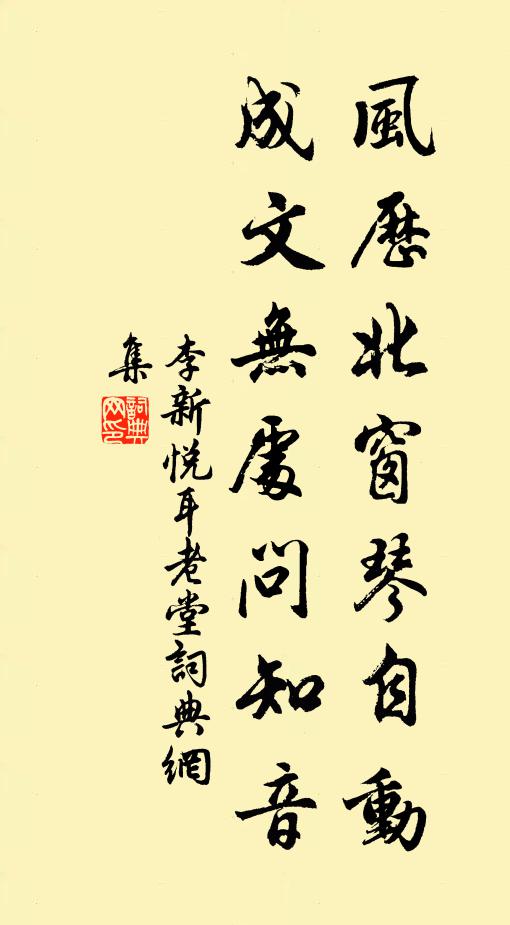 風歷北窗琴自動
成文無處問知音
李新悦耳老堂詞典網
集
詞典
網印